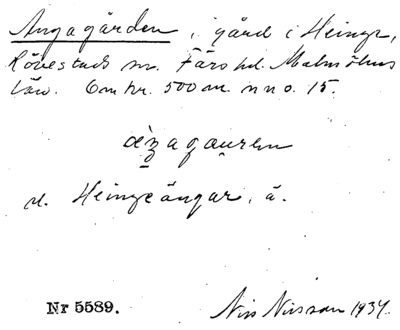 Ängagården, gård i Heinge,
Rövestads sn. Färs hd. Malmöhus
län. Omkr. 500 m. nno. 15.
d. Heingeängar, ä.
Nr 5589.
Nils Nilsson 1934.